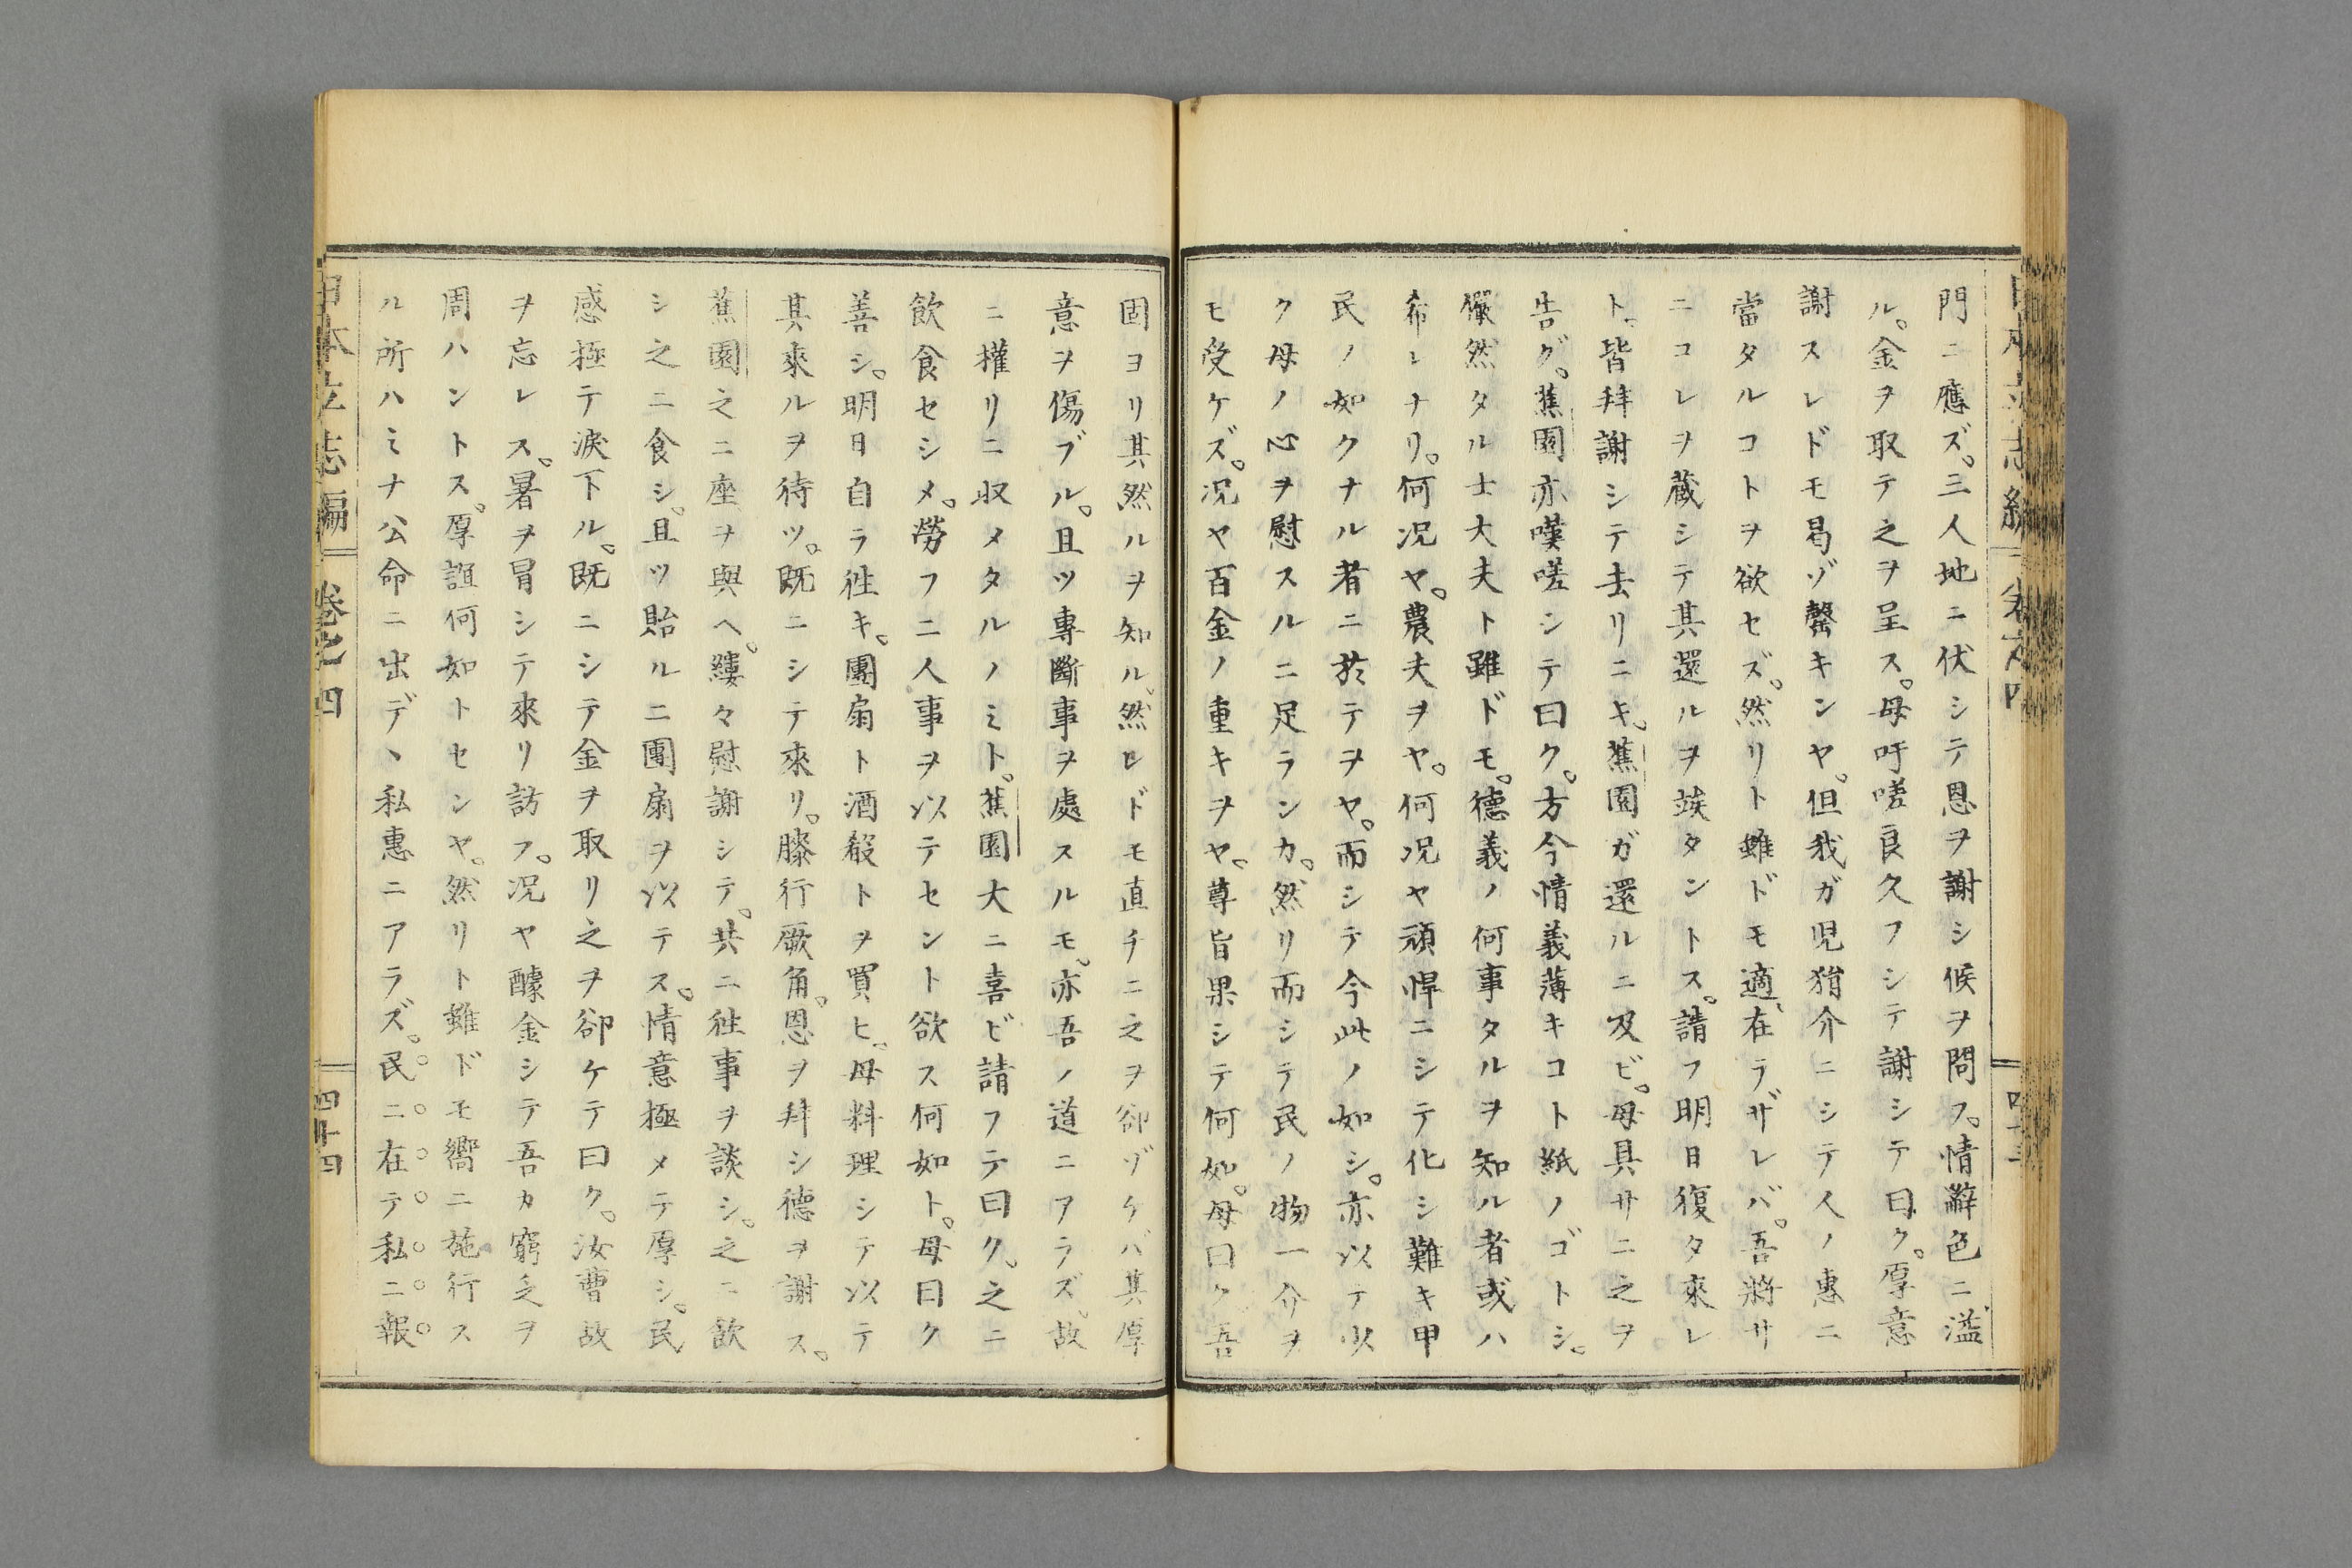 門ニ應ズ。三人地ニ伏シテ恩ヲ謝シ候ヲ問フ。情辭色ニ溢
ル。金ヲ取テ之ヲ呈ス。母吁嗟良久フシテ謝シテ曰ク。厚意
謝スレドモ曷ゾ罄キンヤ。但我ガ児狷介ニシテ人ノ惠ニ
當タルコトヲ欲セズ。然リト雖ドモ適、在ラザレバ。吾將サ
ニコレヲ蔵シテ其還ルヲ竢タントス。請フ明日復タ來レ
ト。皆拜謝シテ去リニキ。蕉園ガ還ルニ及ビ。母具サニ之ヲ
告グ。蕉園亦嘆嗟シテ曰ク。方今情義薄キコト紙ノゴトシ。
儼然タル士大夫ト雖ドモ。德義ノ何事タルヲ知ル者或ハ
希レナリ。何況ヤ。農夫ヲヤ。何況ヤ頑悍ニシテ化シ難キ甲
民ノ如クナル者ニ於テヲヤ。而シテ今此ノ如シ。亦以テ以
ク母ノ心ヲ慰スルニ足ランカ。然リ而シテ民ノ物一介ヲ
モ受ケズ。況ヤ百金ノ重キヲヤ。尊旨果シテ何如。母曰ク吾
固ヨリ其然ルヲ知ル。然レドモ直チニ之ヲ卻ゾケバ其厚
意ヲ傷ブル。且ツ專斷事ヲ處スルモ、亦吾ノ道ニアラズ。故
ニ權リニ収メタルノミト。蕉園大ニ喜ビ請フテ曰ク。之ニ
飲食セシメ。勞フニ人事ヲ以テセント欲ス何如ト。母曰ク
善シ。明日自ラ徃キ。團扇ト酒殽トヲ買ヒ。母料理シテ以テ
其來ルヲ待ツ。既ニシテ來リ。膝行厥角。恩ヲ拜シ德ヲ謝ス。
蕉園之ニ座ヲ與ヘ。縷々慰謝シテ。共ニ徃事ヲ談シ。之ニ飲
シ之ニ食シ。且ツ貽ルニ團扇ヲ以テス。情意極メテ厚シ。民
感極テ涙下ル。既ニシテ金ヲ取リ之ヲ卻ケテ曰ク。汝曹故
ヲ忘レス。暑ヲ冒シテ來リ訪フ。況ヤ醵金シテ吾カ窮乏ヲ
周ハントス。厚誼何如トセンヤ。然リト雖ドモ嚮ニ施行ス
ル所ハミナ公命ニ出デヽ私惠ニアラズ。民ニ在テ私ニ報
日本立志編 卷之四 四十四